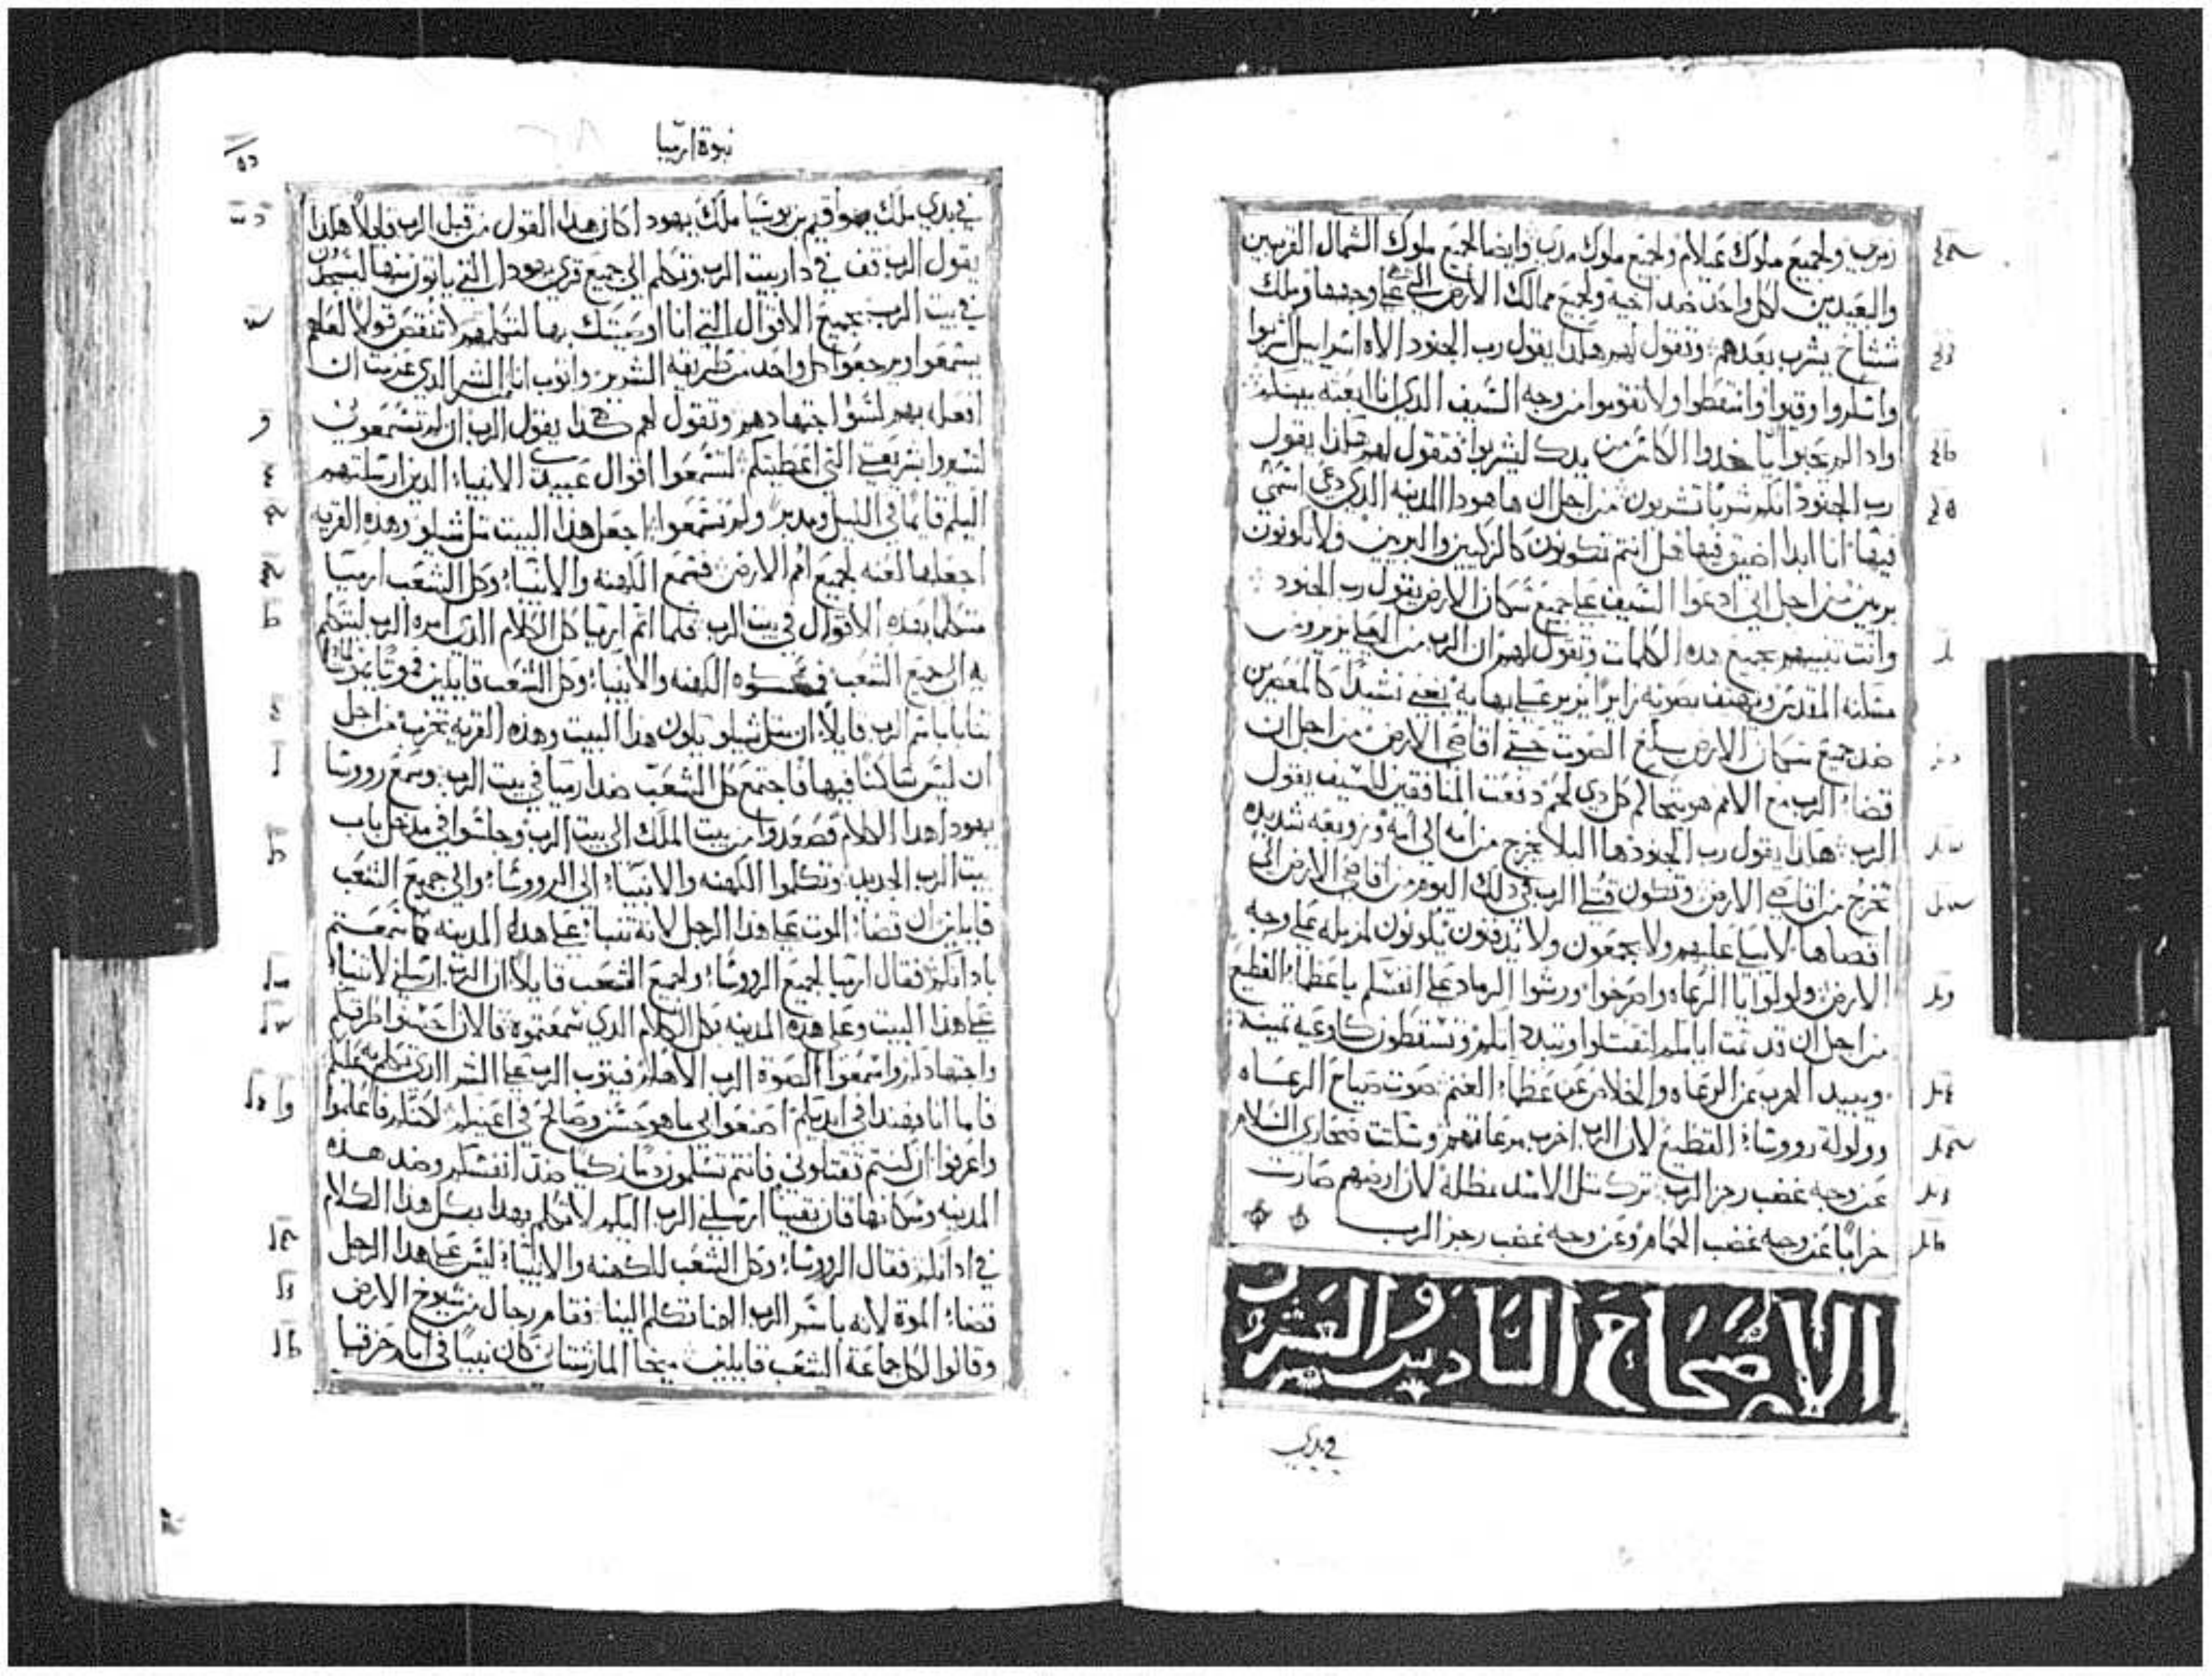 زمري ولجميع ملوك عيلام ولجميع ملوك مدي وايضا لجميع ملوك الشمال القريبين
والبعيدين لكل واحد ضد اخيه ولجميع ممالك الارض التي على وجهها وملك
ششاخ يشرب بعدهم وتقول لهم هكذا يقول رب الجنود الاه اسراييل اشربوا
واسكروا وقيوا واسقطوا ولا تقوموا من وجه السيف الذي انا ابعثه بينكم
واذا لم ياخذوا الكاس من يدك ليشربوا فتقول لهم هكذا يقول
رب الجنود انكم شربا تشربون من اجل ان هاهودا المدينه الذي دعي اسمي
فيها انا ابدا اضيق فهل انتم تكونون كالزكيين والبريين ولا تكونون
بريين من اجل اني ادعوا السيف على جميع سكان الارض يقول رب الجنود
وانت تنبيهم بجميع هذه الكلمات وتقول لهم ان الرب من العلي يزير ومن
مسكنه المقدس ويهتف بصوته زايرا يزير على بهايه يعني نشيدا كالمعصرين
ضد جميع سكان الارض بلغ الصوت حتى اقاصي الارض من اجل ان
قضاء الرب مع الامم هو يتحاكم كل دي لحم دفعت المنافقين للسيف يقول
الرب هكذا يقول رب الجنود ها البلا يخرج من امه الى امه وزوبعه شديده
تخرج من اقاصي الارض وتكون قتلى الرب في ذلك اليوم من اقاصي الارض الى
اقصاها لا يبكى عليهم ولا يجمعون ولا يدفنون يكونون لمزبله على وجه
الارض ولولوا يا الرعاه واصرخوا ورشوا الرماد على انفسكم يا عظماء القطيع
من اجل ان قد تمت ايامكم لتقتلوا وتبددكم وتسقطون كاوعيه ثمينه
ويبيد الهرب عن الرعاه والخلاص عن عظماء الغنم صوت صياح الرعاه
وولولة رووساء القطيع لان الرب اخرب مرعاتهم وسكتت صحاري السلام
عن وجه غضب رجز الرب ترك مثل الاسد مظلة لان ارضهم صارت
خرابا عن وجه غضب الحمام وعن وجه غضب رجز الرب
الاصحاح السادس والعشرون
في بدي
نبوة ارميا
في بدي ملك يواقيم بن يوشيا ملك يهودا كان هذا القول من قبل الرب قايلا هكذا
يقول الرب قف في دار بيت الرب وتكلم الى جميع قرى يهودا التي ياتون منها ليسجدون
في بيت الرب بجميع الاقوال التي انا اوصيتك بها لتكلمهم لا تنقص قولا لعلهم
يسمعوا ويرجعوا كل واحد من طريقه الشرير واتوب انا الشر الذي عزمت ان
افعل بهم لسوا اجتهادهم وتقول لهم هكذا يقول الرب ان لم تسمعوني
لتسيروا بشريعتي التي اعطيتكم لتسمعوا اقوال عبيدي الانبياء الذين ارسلتهم
اليكم قايما في الليل ومدبر ولم تسمعوا اجعل هذا البيت مثل شيلو وهذه القريه
اجعلها لعنه لجميع امم الارض فسمع الكهنه والانبياء وكل الشعب ارميا
متكلما بهذه الاقوال في بيت الرب فلما اتم ارميا كل الكلام الذي امره الرب ليتكلم
به الى جميع الشعب الكهنه والانبياء وكل الشعب قايلين
باسم الرب قايلا ان مثل شيلو يكون هذا البيت وهذه القريه تخرب من اجل
ان ليس ساكنا فيها فاجتمع كل الشعب ضد ارميا في بيت الرب وسمع رووسا
يهودا هذا الكلام فصعدوا من بيت الملك الى بيت الرب وجلسوا في مدخل باب
بيت الرب الجديد وتكلموا الكهنه والانبياء الى الرووساء والى جميع الشعب
قايلين ان قضاء الموت على هذا الرجل لانه تنبا على هذه المدينه كما سمعتم
باذانكم فقال ارميا لجميع الرووساء ولجميع الشعب قايلا ان الرب ارسلني لاتنبا
على هذا البيت وعلى هذه المدينه بكل الكلام الذي سمعتموه فالان حسنوا طرقكم
واجتهادكم واسمعوا لصوة الرب الاهكم فيتوب الرب على الشر الذي تكلم به عليكم
فاما انا فهندا في ايديكم اصنعوا بي ما هو حسن وصالح في اعينكم لكنكم فاعلموا
واعرفوا ان كنتم تقتلوني فانتم تسلمون دما زكيا ضد انفسكم وضد هذه
المدينه وسكانها فان يقينا ارسلني الرب اليكم لاتكلم بهذا بكل هذا الكلام
في اذانكم فقال الرووساء وكل الشعب للكهنه والانبياء ليس على هذا الرجل
قضاء الموة لانه باسم الرب الهنا تكلم الينا فقام رجال من شيوخ الارض
وقالوا لكل جماعة الشعب قايلين ميخا المارشتاي كان نبيا في ايام حزقيا